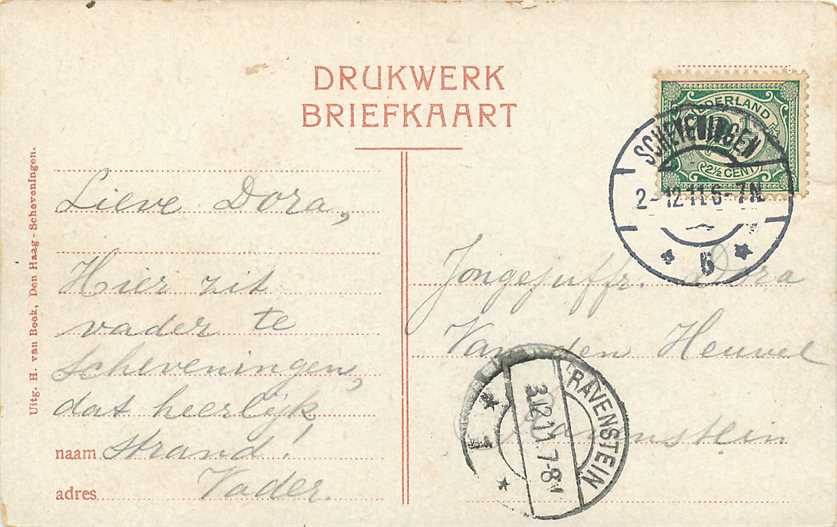 DRUKWERK
BRIEFKAART
NEDERLAND
2½ CENT
SCHEVENINGEN
2-12.11.6-7N
6
Lieve Dora,
Hier zit
vader te
Scheveningen,
dat heerlijk
naam strand!
adres Vader.
Uitg. H. van Beek, Den Haag-Scheveningen.
Jongejuffr. Dora
Van den Heuvel
Ravenstein
RAVENSTEIN
3.12.11.7-8V
1